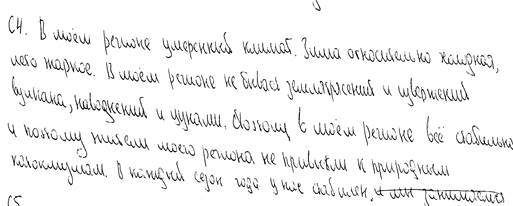 С4. В моём регионе умеренный климат. Зима относительно холодная,
лето жаркое. В моём регионе не бывает землетрясений и извержений
вулкана, наводнений и цунами. Поэтому в моём регионе всё стабильно
и поэтому жители моего региона не привыкли к природным
катаклизмам. В каждый сезон года у нас стабилен, и мы занимаемся
С5